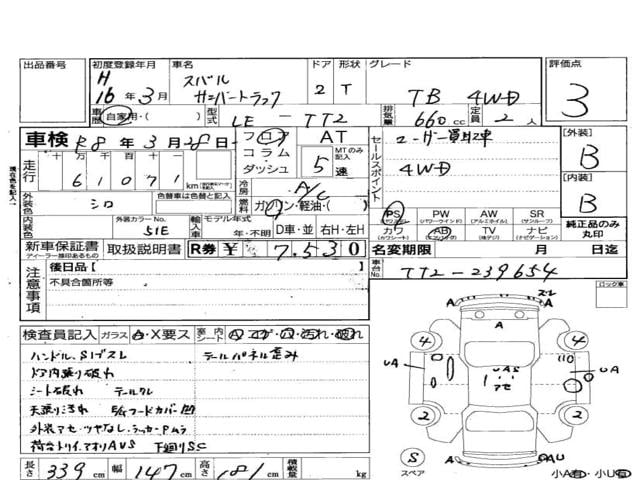 出品番号 初度登録年月 車名 ドア 形状 グレード 評価点
H 16年3月 スバル サンバートラック 2 T TB 4WD 3
車歴 自家用・( ) 型式 LE-TT2 排気量 660cc 定員 2人
車検 R8年3月28日 フロア AT セールスポイント ユーザー買取車 【外装】 B
走行 十万 万 千 百 十 一 コラム・ダッシュ 5速 MTのみ記入 4WD
61071 km
冷房 A/C 【内装】 B
外装色 シロ 色替車は色替と記入 燃料 ガソリン・軽油・( ) PS PW AW SR
(パワステ) (パワーウインド) (アルミホイル) (サンルーフ)
内装色 外装カラーNo. 51E 輸入車 モデル年式 年・不明 D車・並 右H・左H カワ AB TV ナビ 純正品のみ丸印
(カワシート) (エアバッグ) (テレビ) (ナビゲーション)
新車保証書 取扱説明書 R券 ¥ 7,530 名変期限 月 日迄
ディーラー捺印あるもの
注意事項 後日品【 】 車台No. TT2-239654
不具合箇所等
ロック車
検査員記入 ガラス A・X要ス 室内シート
ハンドル、Sノブスレ テールパネル歪み
ドア内張り破れ
シート破れ テールクレ
天張り汚れ
荷台トリイ、アオリAUS 下廻りSC
長さ 339cm 幅 147cm 高さ 181cm 積載量 kg
スレ A A A
4 4
UA UA
2 2
S スペア
小A有・小U有